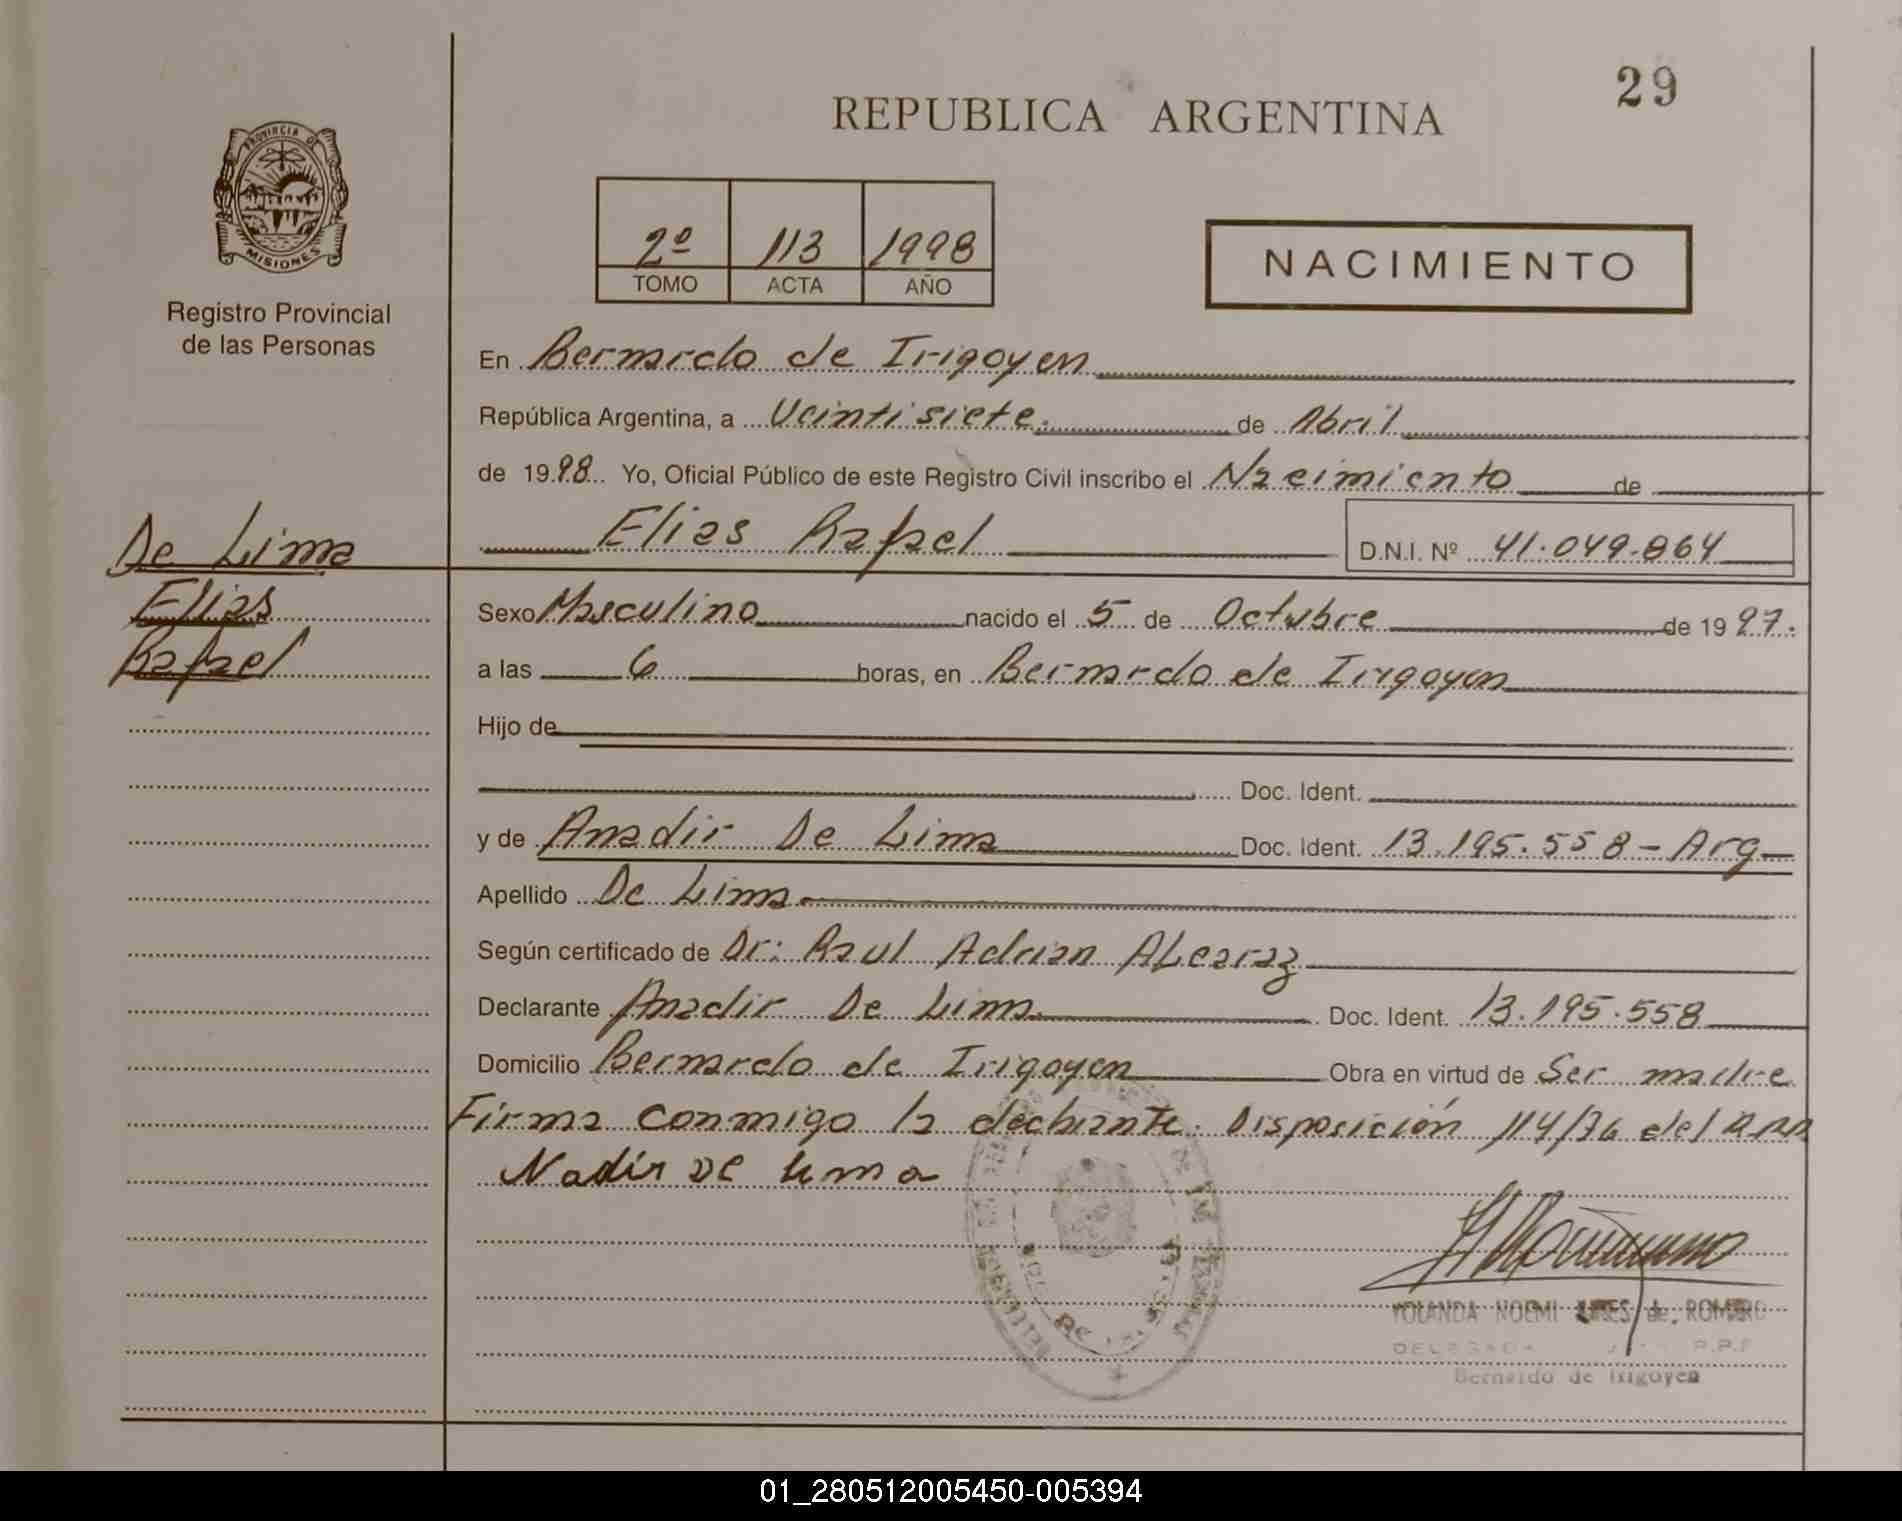 29
REPUBLICA ARGENTINA
PROVINCIA DE
MISIONES
Registro Provincial
de las Personas
2º 113 1998
TOMO ACTA AÑO
NACIMIENTO
En Bernardo de Irigoyen
República Argentina, a Veintisiete. de Abril
de 1998 Yo, Oficial Público de este Registro Civil inscribo el Nacimiento de
De Lima
Elias Rafael D.N.I. Nº 41.049.864
Elias
Rafael
Sexo Masculino nacido el 5 de Octubre de 1997.
a las 6 horas, en Bernardo de Irigoyen
Hijo de
Doc. Ident.
y de Anadir De Lima Doc. Ident. 13.195.558 - Arg
Apellido De Lima
Según certificado de Dr: Raul Adrian ALcaraz
Declarante Anadir De Lima Doc. Ident. 13.195.558
Domicilio Bernardo de Irigoyen Obra en virtud de Ser madre
Firma conmigo la declarante. Disposición 114/76 del
Nadir De lima
YOLANDA NOEMI de ROMERO
DELEGADA
Bernardo de Irigoyen
01_280512005450-005394